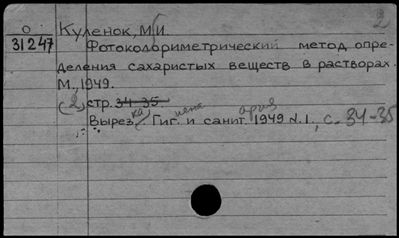 О
31247
Куленок, М.И.
2
Фотоколориметрический метод опре-
деления сахаристых веществ в растворах.
М., 1949.
(2) стр. 34-35
Вырезка. Гигиена и санитария 1949 N.1., с. 34-35